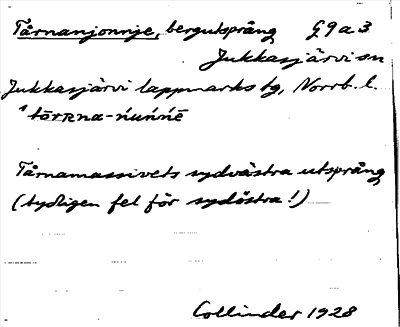 Tårnanjonnje, bergutsprång G9a3
Jukkasjärvi sn
Jukkasjärvi lappmarks tg, Norrb. l.
Tårnamassivets sydvästra utsprång
(tydligen fel för sydöstra!)
Collinder 1928